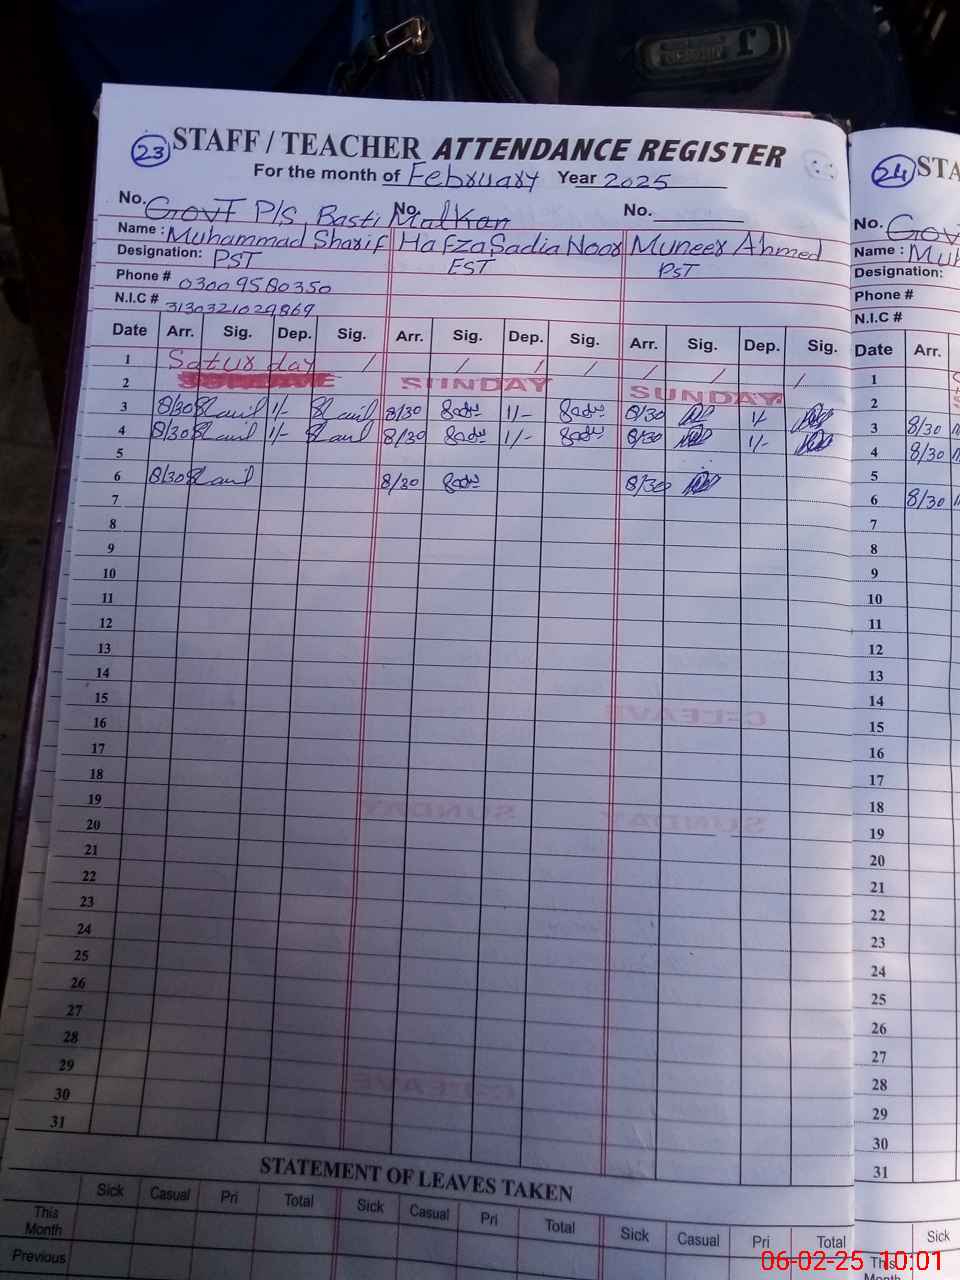 23 STAFF / TEACHER ATTENDANCE REGISTER
For the month of February Year 2025
No. Govt P/s Basti Malkan No. No.
Name : Muhammad Sharif Hafza Sadia Noor Muneer Ahmed
Designation: PST EST PST
Phone # 03009580350
N.I.C # 3130321029869
Date Arr. Sig. Dep. Sig. Arr. Sig. Dep. Sig. Arr. Sig. Dep. Sig.
1 Saturday / / / / / / /
2 SUNDAY SUNDAY
3 8/30 1/- 8/30 1/- 8/30 1/-
4 8/30 1/- 8/30 1/- 8/30 1/-
5
6 8/30 8/30 8/30
7
8
9
10
11
12
13
14
15
16
17
18
19
20
21
22
23
24
25
26
27
28
29
30
31
STATEMENT OF LEAVES TAKEN
Sick Casual Pri Total Sick Casual Pri Total Sick Casual Pri Total
This Month
Previous
24 STA
No. Gov
Name : Muh
Designation:
Phone #
N.I.C #
Date Arr.
1
2
3 8/30
4 8/30
5
6 8/30
7
8
9
10
11
12
13
14
15
16
17
18
19
20
21
22
23
24
25
26
27
28
29
30
31
Sick
This
Month
06-02-25 10:01